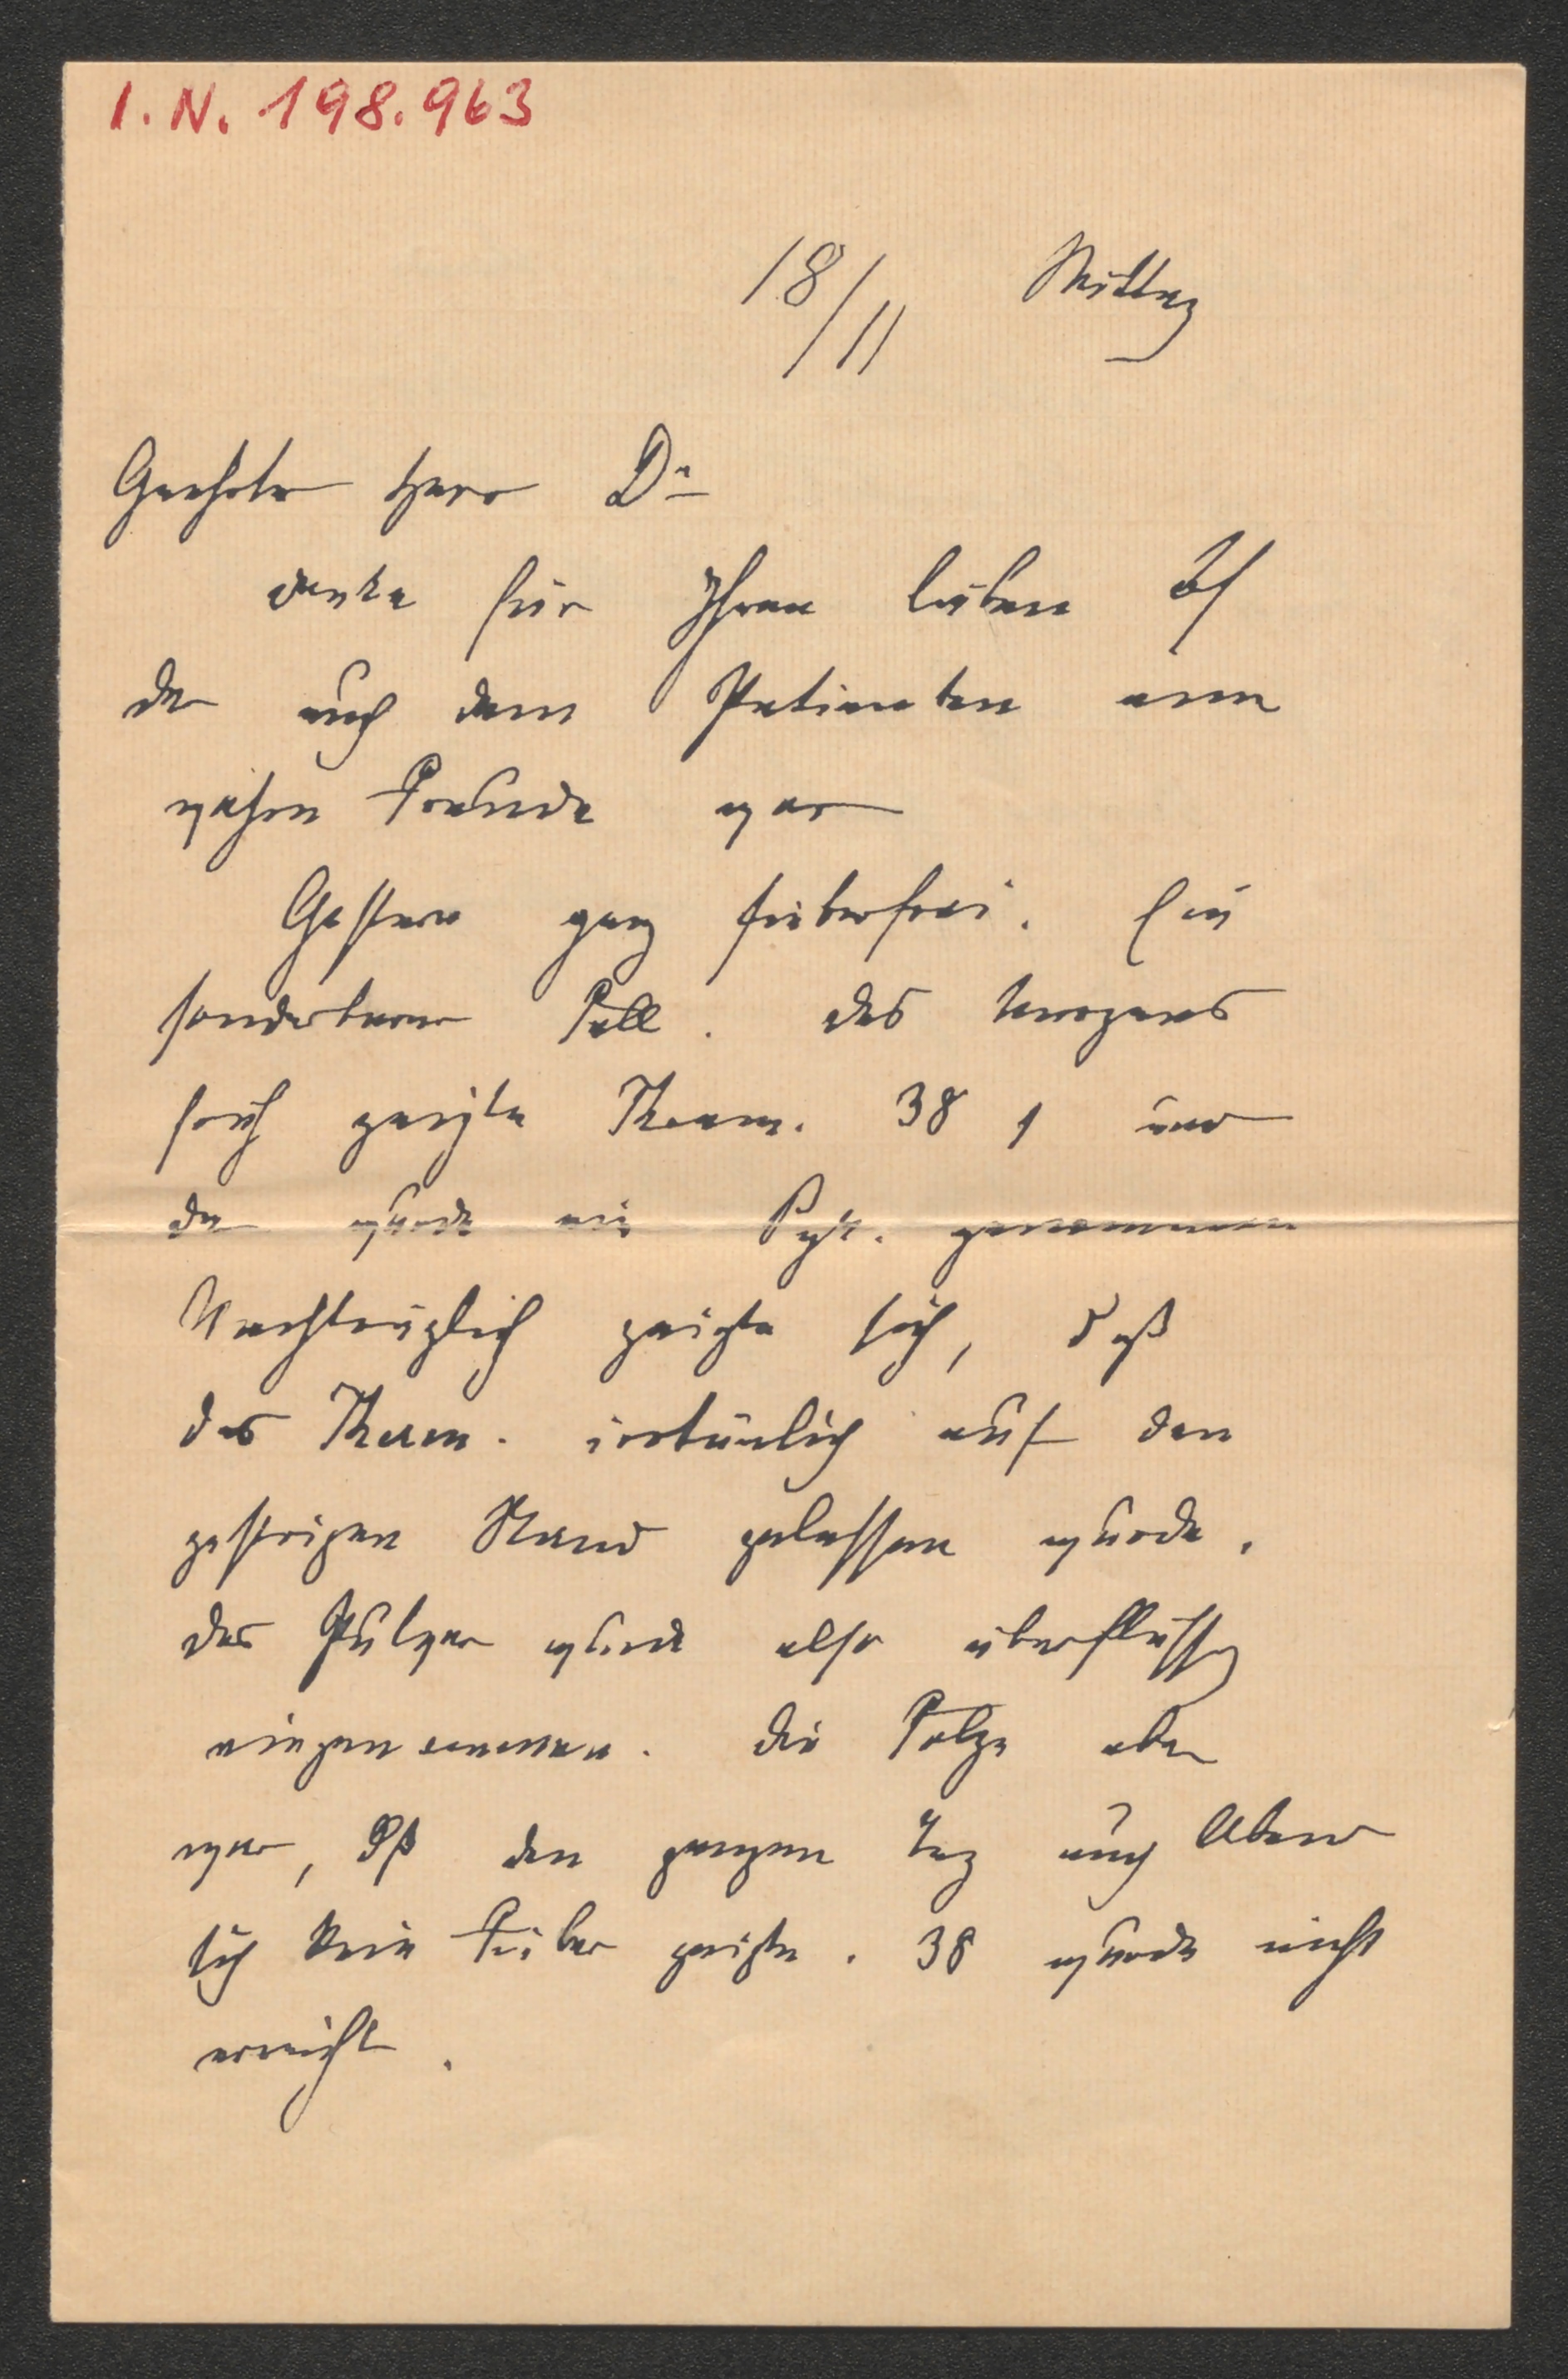 I. N. 198.963
18/11 Mittag
Geehrter Herr Dr
danke für Ihren lieben Bf
der auch dem Patienten eine
wahre Freude war
Gestern ganz fieberfrei. Ein
sonderbarer Fall. Des Morgens
früh zeigte Therm. 38 1 und
da wurde ein Pyr. genommen
Nachträglich zeigte sich, daß
das Therm. irrtümlich auf den
gestrigen Stand gelassen wurde.
Das Pulver wurde also überflüssig
eingenommen. Die Folge aber
war, dß den ganzen Tag auch Abend
sich kein Fieber zeigte. 38 wurde nicht
erreicht.